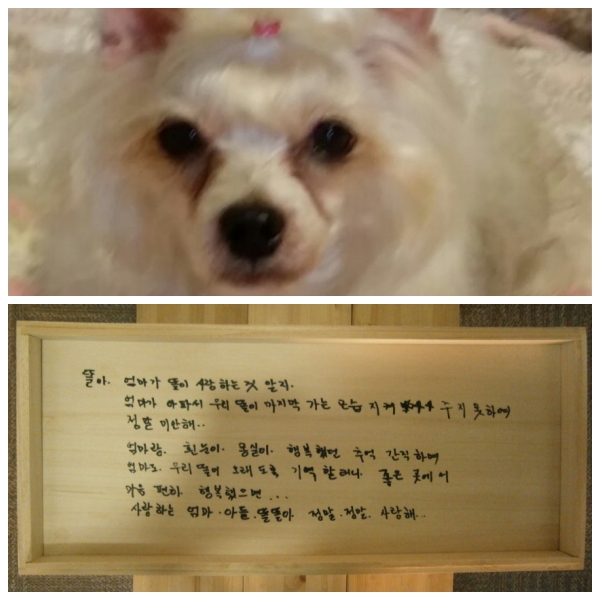 똘아. 엄마가 똘이 사랑하는것 알지.
엄마가 아파서 우리 똘이 마지막 가는 모습 지켜 주지 못하여
정말 미안해..
엄마랑. 흰둥이. 몽실이. 행복했던 추억 간직하며
엄마도. 우리 똘이 오래도록 기억 할테니. 좋은 곳에서
마음 편히. 행복했으면...
사랑하는 엄마.아들.똘똘아 정말.정말. 사랑해...